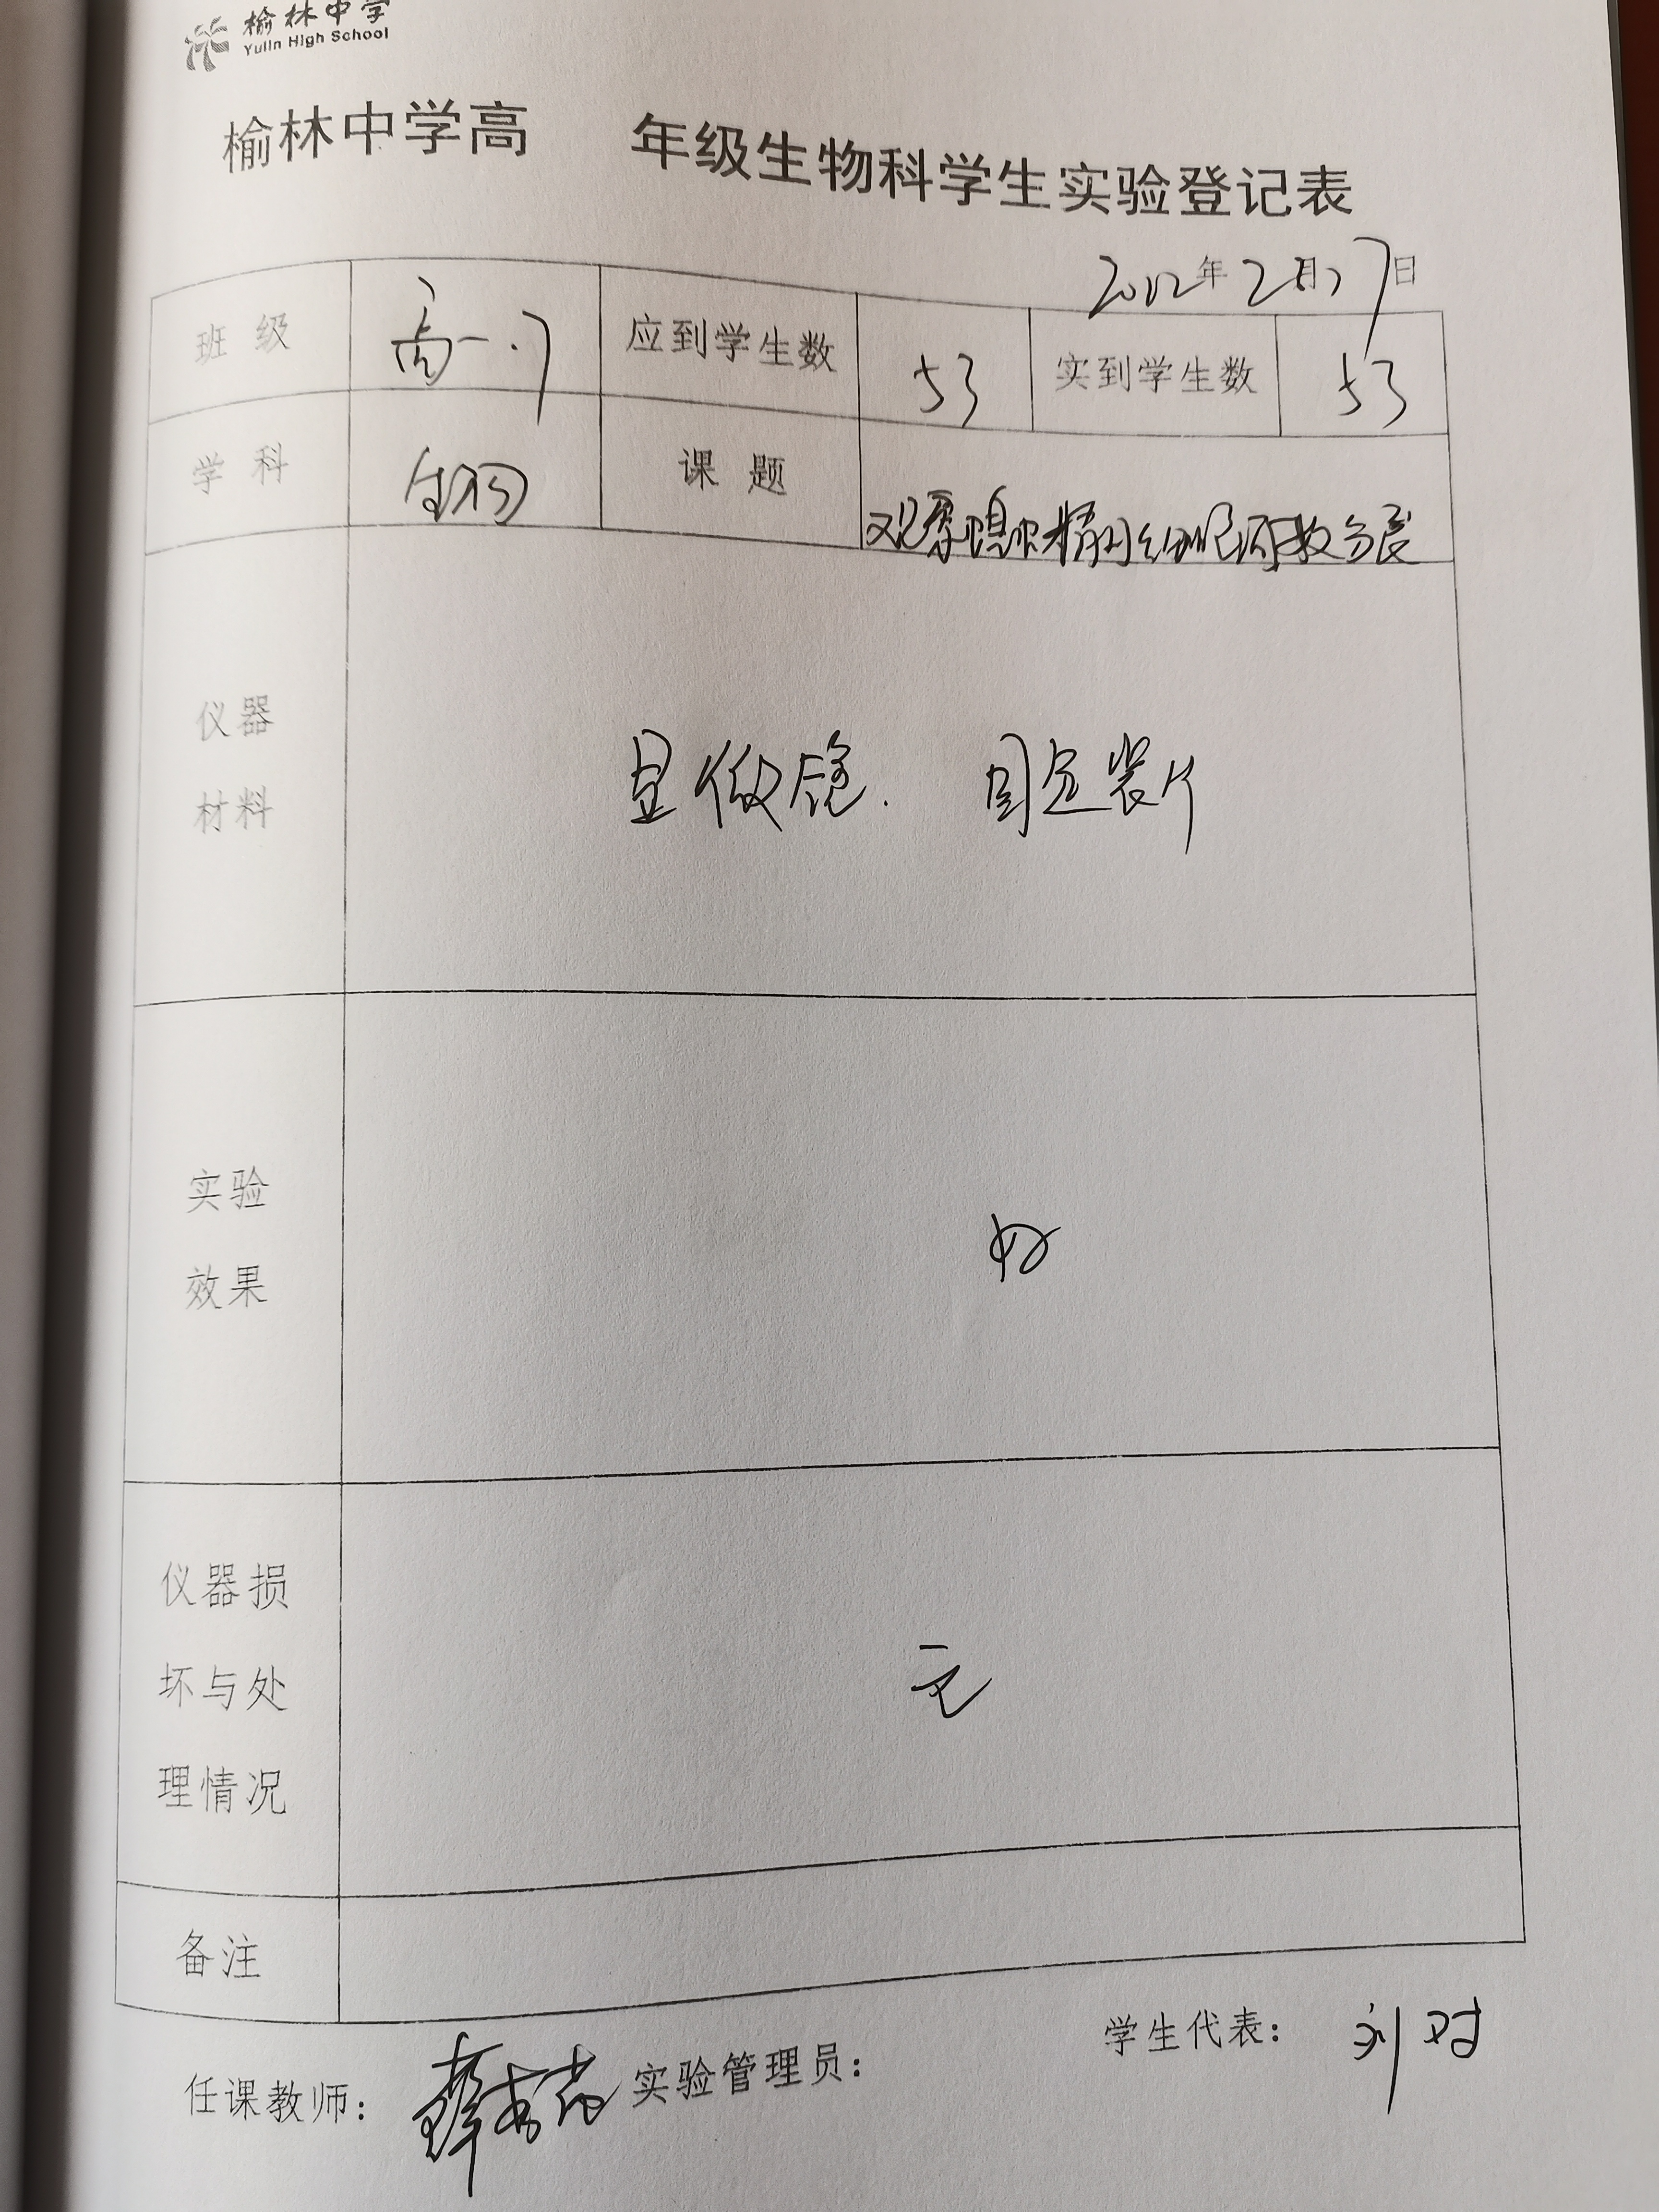 榆林中学
Yulin High School
榆林中学高 年级生物科学生实验登记表
2022年2月27日
班 级 高一.7 应到学生数 53 实到学生数 53
学 科 生物 课 题 观察蝗虫精母细胞减数分裂
仪器
材料
显微镜. 固定装片
实验
效果
好
仪器损
坏与处
理情况
无
备注
学生代表: 刘对
任课教师: 薛 实验管理员: